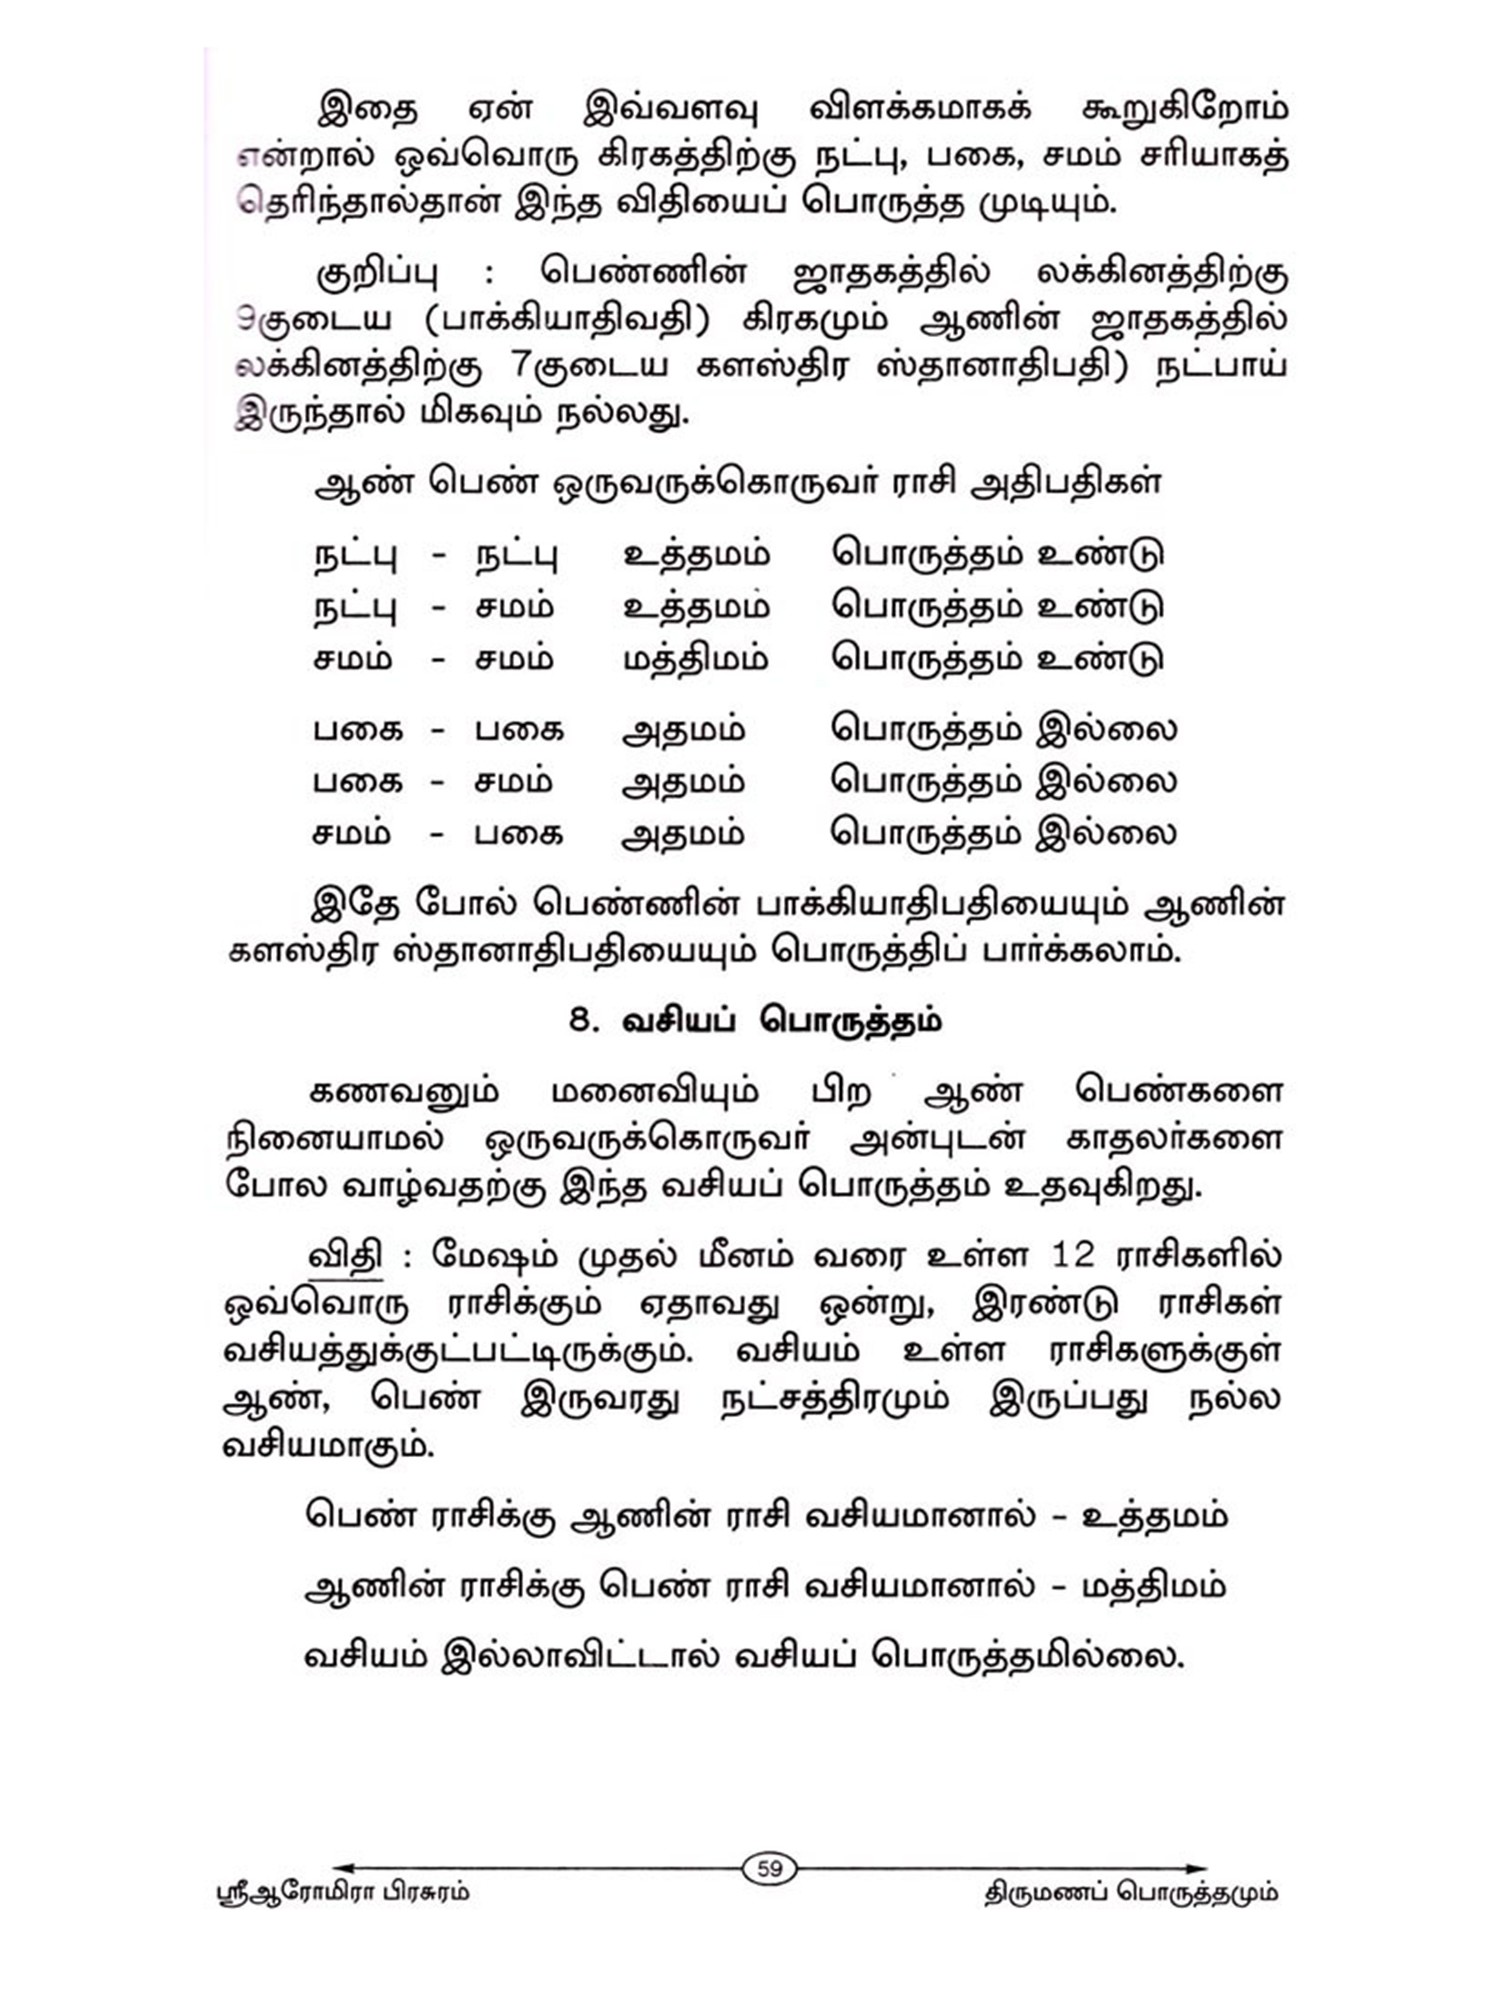 இதை ஏன் இவ்வளவு விளக்கமாகக் கூறுகிறோம்
என்றால் ஒவ்வொரு கிரகத்திற்கு நட்பு, பகை, சமம் சரியாகத்
தெரிந்தால்தான் இந்த விதியைப் பொருத்த முடியும்.
குறிப்பு : பெண்ணின் ஜாதகத்தில் லக்கினத்திற்கு
9குடைய (பாக்கியாதிவதி) கிரகமும் ஆணின் ஜாதகத்தில்
லக்கினத்திற்கு 7குடைய களஸ்திர ஸ்தானாதிபதி) நட்பாய்
இருந்தால் மிகவும் நல்லது.
ஆண் பெண் ஒருவருக்கொருவர் ராசி அதிபதிகள்
நட்பு - நட்பு உத்தமம் பொருத்தம் உண்டு
நட்பு - சமம் உத்தமம் பொருத்தம் உண்டு
சமம் - சமம் மத்திமம் பொருத்தம் உண்டு
பகை - பகை அதமம் பொருத்தம் இல்லை
பகை - சமம் அதமம் பொருத்தம் இல்லை
சமம் - பகை அதமம் பொருத்தம் இல்லை
இதே போல் பெண்ணின் பாக்கியாதிபதியையும் ஆணின்
களஸ்திர ஸ்தானாதிபதியையும் பொருத்திப் பார்க்கலாம்.
8. வசியப் பொருத்தம்
கணவனும் மனைவியும் பிற ஆண் பெண்களை
நினையாமல் ஒருவருக்கொருவர் அன்புடன் காதலர்களை
போல வாழ்வதற்கு இந்த வசியப் பொருத்தம் உதவுகிறது.
விதி : மேஷம் முதல் மீனம் வரை உள்ள 12 ராசிகளில்
ஒவ்வொரு ராசிக்கும் ஏதாவது ஒன்று, இரண்டு ராசிகள்
வசியத்துக்குட்பட்டிருக்கும். வசியம் உள்ள ராசிகளுக்குள்
ஆண், பெண் இருவரது நட்சத்திரமும் இருப்பது நல்ல
வசியமாகும்.
பெண் ராசிக்கு ஆணின் ராசி வசியமானால் - உத்தமம்
ஆணின் ராசிக்கு பெண் ராசி வசியமானால் - மத்திமம்
வசியம் இல்லாவிட்டால் வசியப் பொருத்தமில்லை.
59
ஸ்ரீஆரோமிரா பிரசுரம் திருமணப் பொருத்தமும்